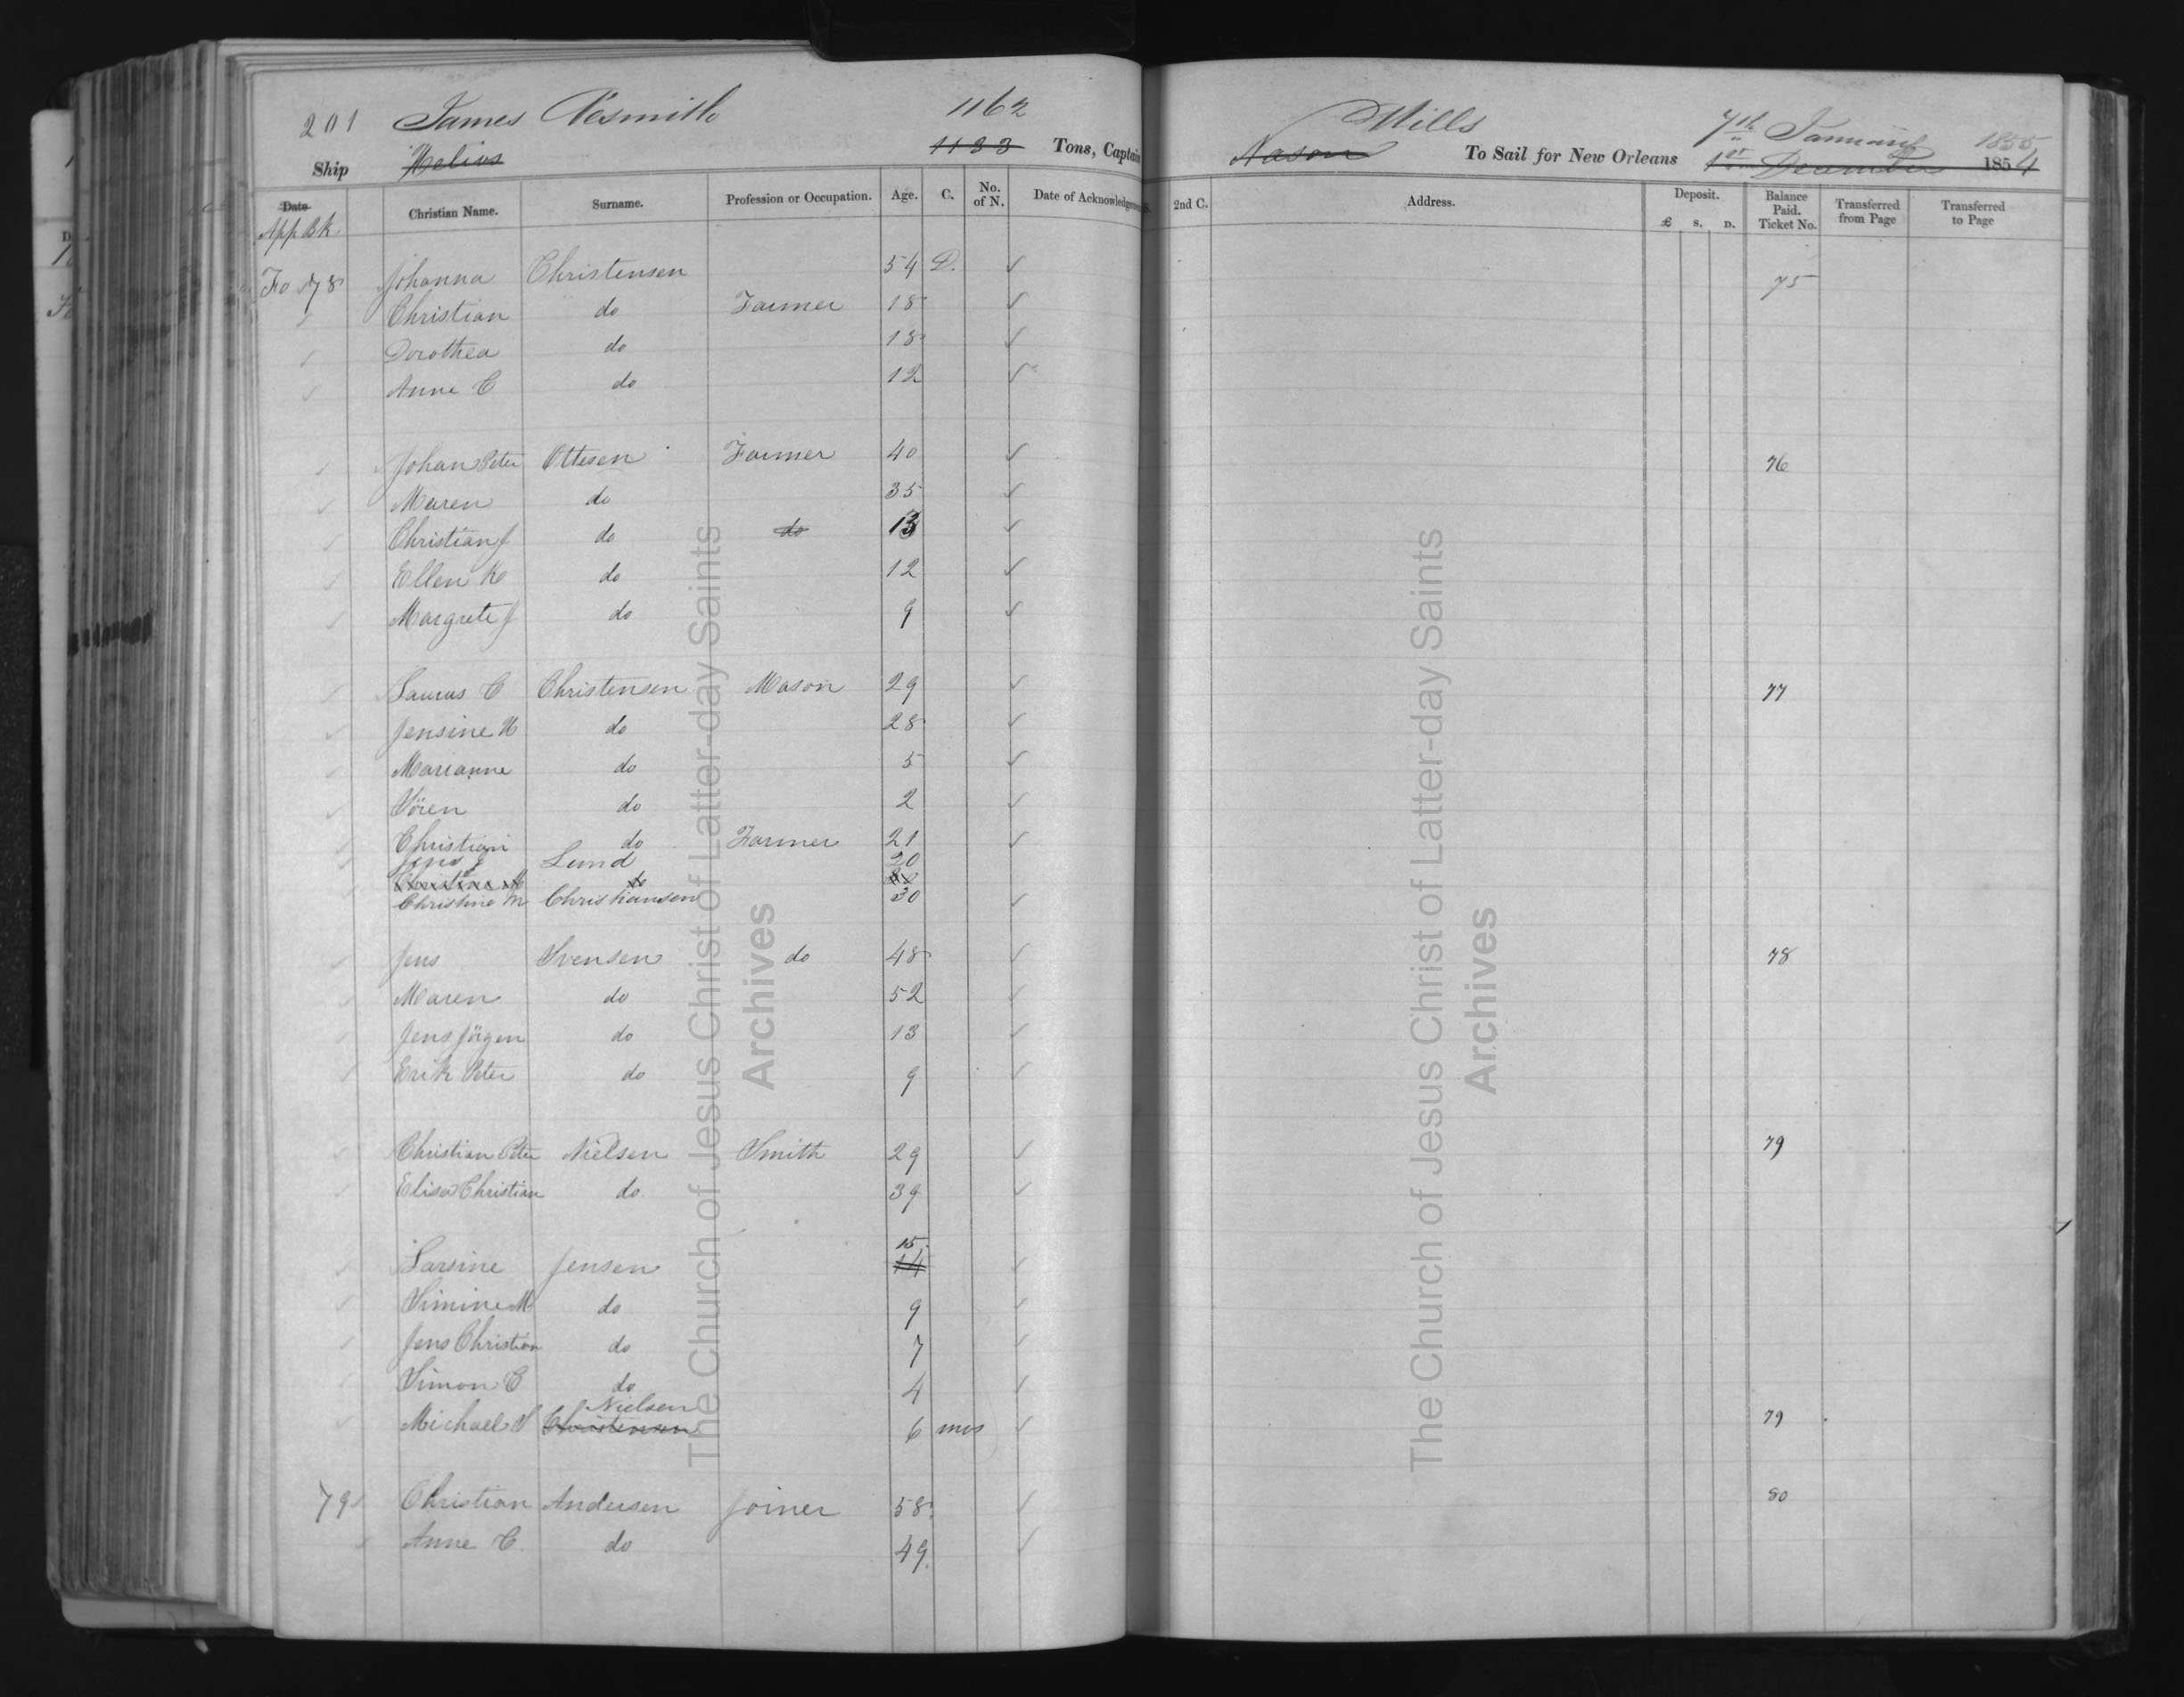 201 James Nesmith 1162 Mills 7th January 1855
Ship Helios 1133 Tons, Captain Nason To Sail for New Orleans 1st December 1854
Date Christian Name. Surname. Profession or Occupation. Age. C. No. of N. Date of Acknowledgement 2nd C. Address. Deposit. £ s. D. Balance Paid. Ticket No. Transferred from Page Transferred to Page
App Bk
Fo 78 Johanna Christensen 54 D. ✓ 75
✓ Christian do Farmer 18 ✓
✓ Dorothea do 18 ✓
✓ Anne C do 12 ✓
✓ Johan Peter Ottesen Farmer 40 ✓ 76
✓ Maren do 35 ✓
✓ Christian J do do 13 ✓
✓ Ellen K do 12 ✓
✓ Margrete J do 9 ✓
✓ Laurus C Christensen Mason 29 ✓ 77
✓ Jensine H do 28 ✓
✓ Marianne do 5 ✓
✓ Sören do 2 ✓
✓ Christian do Farmer 21 ✓
✓ Jens Lund 20
Christine M do
✓ Christine M Christiansen 30 ✓
✓ Jens Svensen do 48 ✓ 78
✓ Maren do 52 ✓
✓ Jens Jörgen do 13 ✓
✓ Erik Peter do 9 ✓
✓ Christian Peter Nielsen Smith 29 ✓ 79
✓ Elisa Christian do 39 ✓
15
✓ Larsine Jensen 14 ✓
✓ Simine M do 9 ✓
✓ Jens Christian do 7 ✓
✓ Simon C do 4 ✓
Nielsen
✓ Michael S Christensen 6 mos ✓ 79
79 ✓ Christian Andersen Joiner 58 ✓ 80
✓ Anne C. do 49 ✓
The Church of Jesus Christ of Latter-day Saints
Archives
The Church of Jesus Christ of Latter-day Saints
Archives